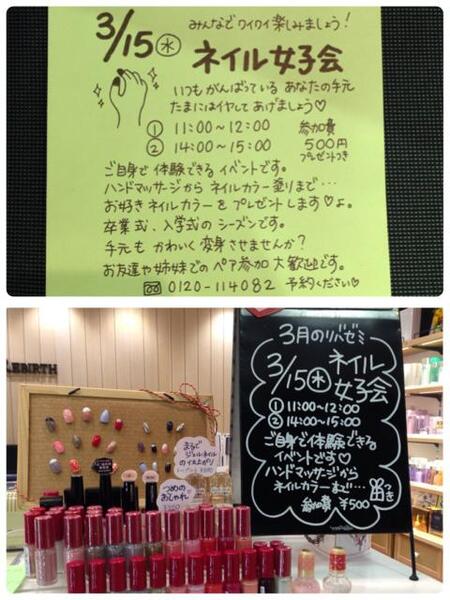 みんなでワイワイ楽しみましょう!
3/15㊌ ネイル女子会
いつもがんばっている あなたの手元
たまにはイヤしてあげましょう♡
① 11:00〜12:00 参加費
② 14:00〜15:00 500円
プレゼントつき
ご自身で体験できるイベントです。
ハンドマッサージからネイルカラー塗りまで…
お好きネイルカラーをプレゼントします♡よ。
卒業式、入学式のシーズンです。
手元もかわいく変身させませんか?
お友達や姉妹でのペア参加大歓迎です。
0120-114082 予約ください♡
REBIRTH
3月のリバゼミ
3/15㊌ ネイル女子会
① 11:00〜12:00
② 14:00〜15:00
ご自身で体験できる
イベントです♡
ハンドマッサージから
ネイルカラーまで…
つき
参加費 ¥500
まるで
ジェルネイル
の仕上がり
つめの
おしゃれ